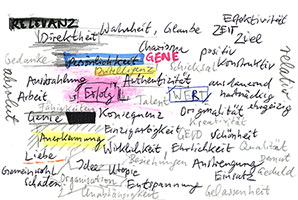 RELEVANZ
Direktheit Wahrheit, Glaube Effektivität
ZEIT
Ziel
Charisma positiv
Gedanke Persönlichkeit GENE konstruktiv
Intelligenz Schicksal relativ
Ausstrahlung Authentizität ausdauernd
absolut Arbeit Erfolg Talent WERT hartnäckig ehrgeizig
Fähigkeiten
Genie Konsequenz Originalität
Kreativität
Anerkennung Einzigartigkeit GELD Schönheit
Liebe Wirklichkeit Ehrlichkeit Qualität
Gemeinwohl Idee Utopie Beziehungen Anstrengung Geduld
Schaden Organisation Einsatz
Entspannung Gelassenheit
Unabhängigkeit